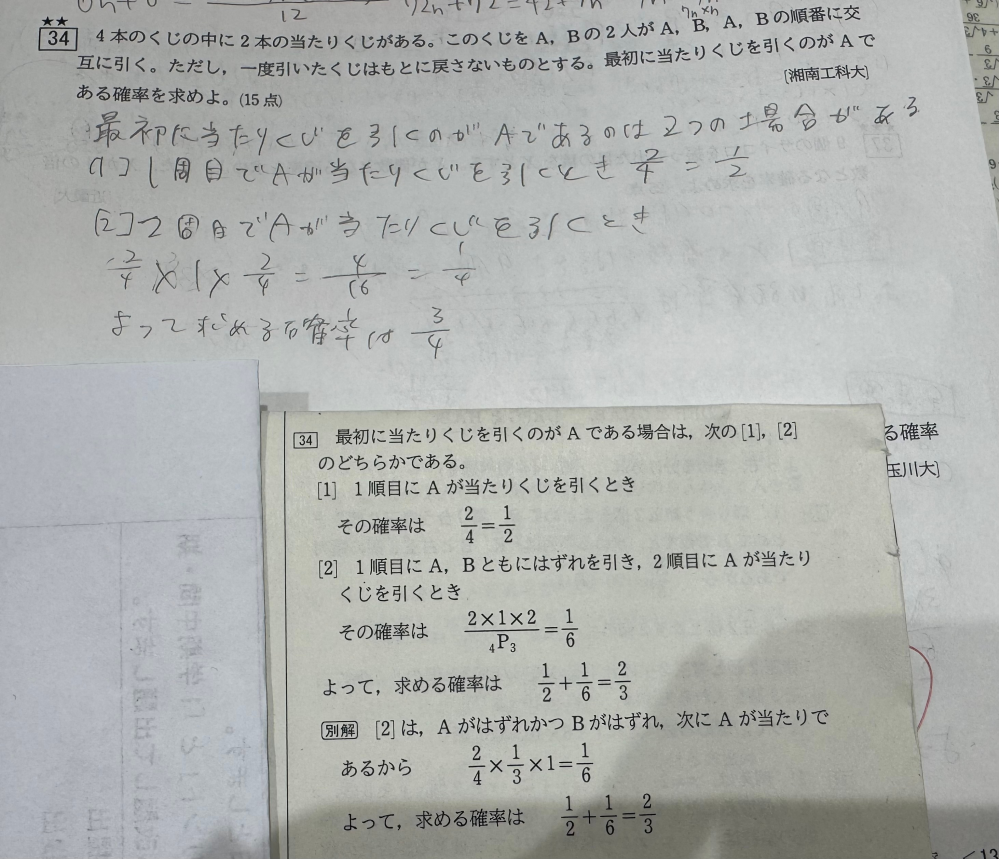 12
★★
34 4本のくじの中に2本の当たりくじがある。このくじをA，Bの2人がA，B，A，Bの順番に交
互に引く。ただし，一度引いたくじはもとに戻さないものとする。最初に当たりくじを引くのがAで
ある確率を求めよ。(15点)
[湘南工科大]
最初に当たりくじを引くのがAであるのは2つの場合がある
[1] 1周目でAが当たりくじを引くとき 2/4 = 1/2
[2] 2周目でAが当たりくじを引くとき
2/4 × 1 × 2/4 = 4/16 = 1/4
よって求める確率は 3/4
る確率
玉川大]
34 最初に当たりくじを引くのがAである場合は，次の[1]，[2]
のどちらかである。
[1] 1順目にAが当たりくじを引くとき
その確率は 2/4=1/2
[2] 1順目にA，Bともにはずれを引き，2順目にAが当たり
くじを引くとき
その確率は 2×1×2/₄P₃=1/6
よって，求める確率は 1/2+1/6=2/3
別解 [2]は，AがはずれかつBがはずれ，次にAが当たりで
あるから 2/4×1/3×1=1/6
よって，求める確率は 1/2+1/6=2/3